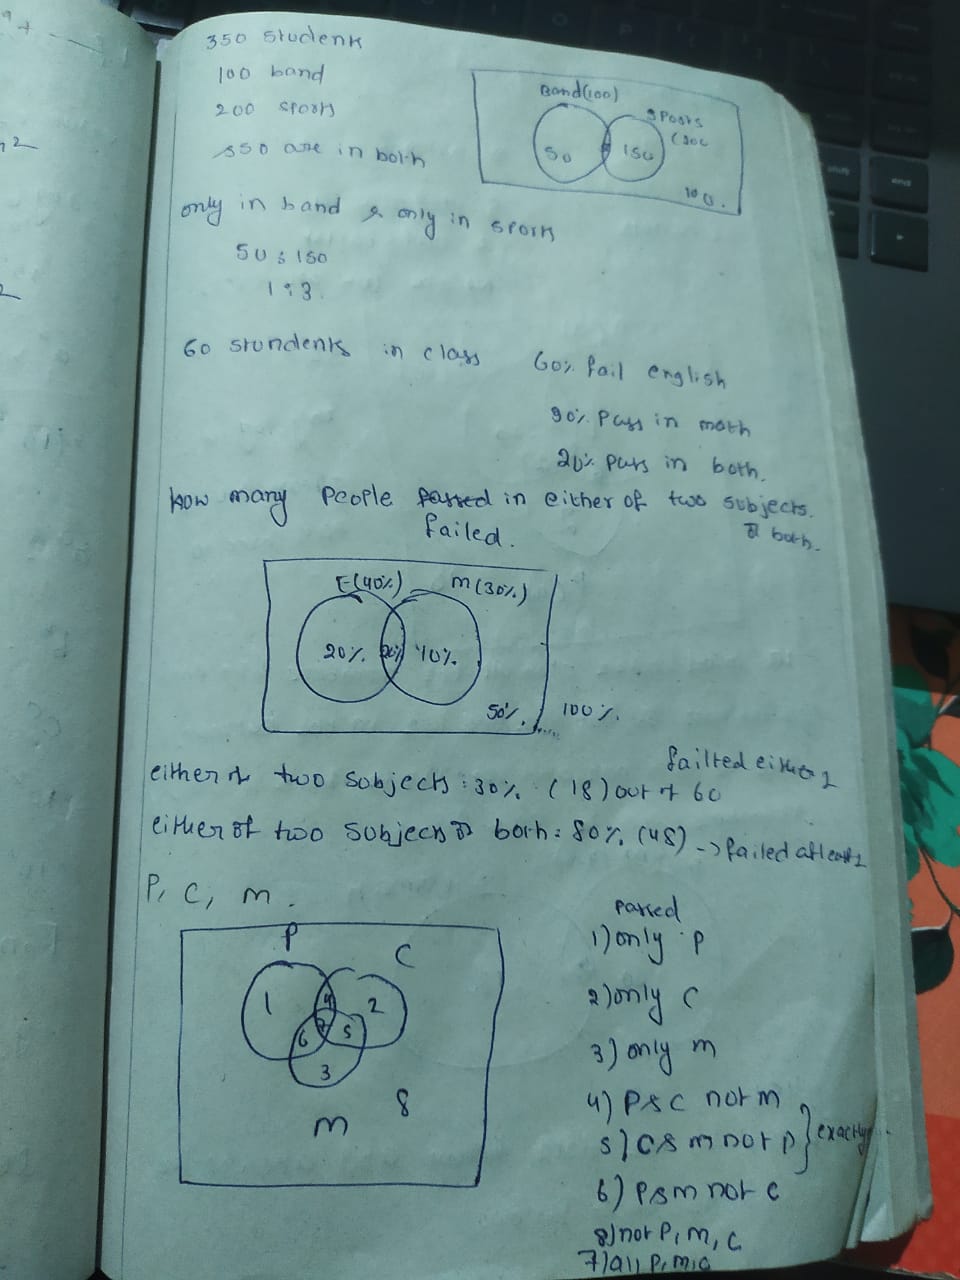 350 students
100 band
200 sports
50 are in both
Band(100)
Sports
(200
50
150
100.
only in band & only in sports
50 : 150
1 : 3.
60 stundents in class
60% fail english
90% pass in math
20% pass in both.
how many people passed in either of two subjects.
failed.
or both.
E(40%)
m(30%)
20%
20%
10%
50%
100%.
failted either 1
either of two subjects : 30% (18) out of 60
either of two subjects or both : 80% (48) -> failed atleast 1
P, C, m.
P
C
1
4
2
7
6
5
3
8
m
Passed
1) only P
2) only C
3) only m
4) P & C not m
5) C & m not p
exactly
6) P & m not C
8) not P, m, C
7) all P, m, C